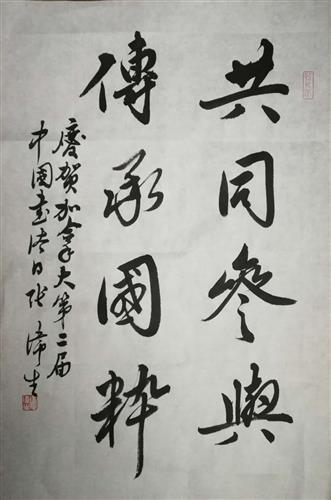 共同參與
傳承國粹
慶賀加拿大第二届
中國書法日張沛生